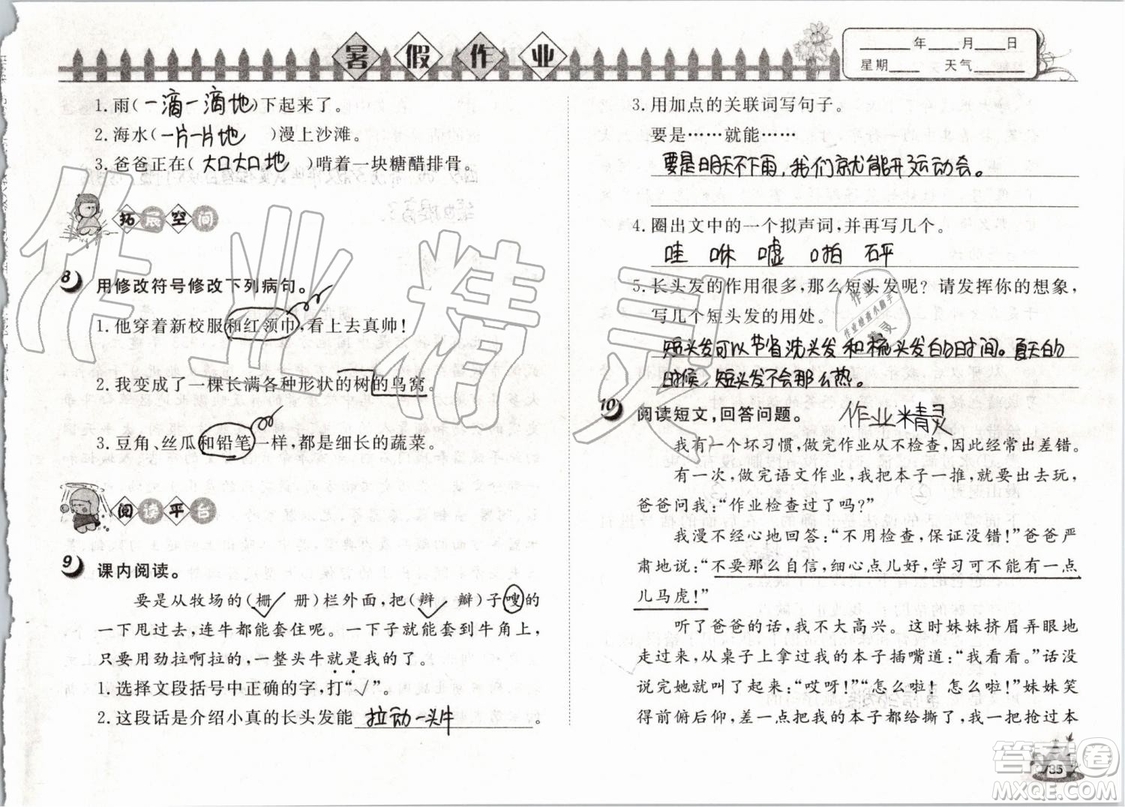 暑假作业
____年____月____日
星期____ 天气____
1.雨(一滴一滴地)下起来了。
2.海水(一片一片地)漫上沙滩。
3.爸爸正在(大口大口地)啃着一块糖醋排骨。
拓展空间
8 用修改符号修改下列病句。
1.他穿着新校服和红领巾,看上去真帅!
2.我变成了一棵长满各种形状的树的鸟窝。
3.豆角、丝瓜和铅笔一样,都是细长的蔬菜。
阅读平台
9 课内阅读。
要是从牧场的(栅 册)栏外面,把(辫 瓣)子嗖的
一下甩过去,连牛都能套住呢。一下子就能套到牛角上,
只要用劲拉啊拉的,一整头牛就是我的了。
1.选择文段括号中正确的字,打“√”。
2.这段话是介绍小真的长头发能 拉动一头牛 。
3.用加点的关联词写句子。
要是……就能……
要是明天不下雨,我们就能开运动会。
4.圈出文中的一个拟声词,并再写几个。
哇 咻 嘘 啪 砰
5.长头发的作用很多,那么短头发呢?请发挥你的想象,
写几个短头发的用处。
短头发可以节省洗头发和梳头发的时间。夏天的
时候,短头发不会那么热。
10 阅读短文,回答问题。 作业精灵
我有一个坏习惯,做完作业从不检查,因此经常出差错。
有一次,做完语文作业,我把本子一推,就要去玩。
爸爸问我:“作业检查过了吗?”
我漫不经心地回答:“不用检查,保证没错!”爸爸严
肃地说:“不要那么自信,细心点儿好,学习可不能有一点
儿马虎!”
听了爸爸的话,我不大高兴。这时妹妹挤眉弄眼地
走过来,从桌子上拿过我的本子插嘴道:“我看看。”话
没说完,妹妹就叫起来:“哎呀!”“怎么啦!怎么啦!”妹妹笑
得前俯后仰,差一点把我的本子都给撕了,我一把抢过本
作业精灵
答案圈
MXQE.COM
35